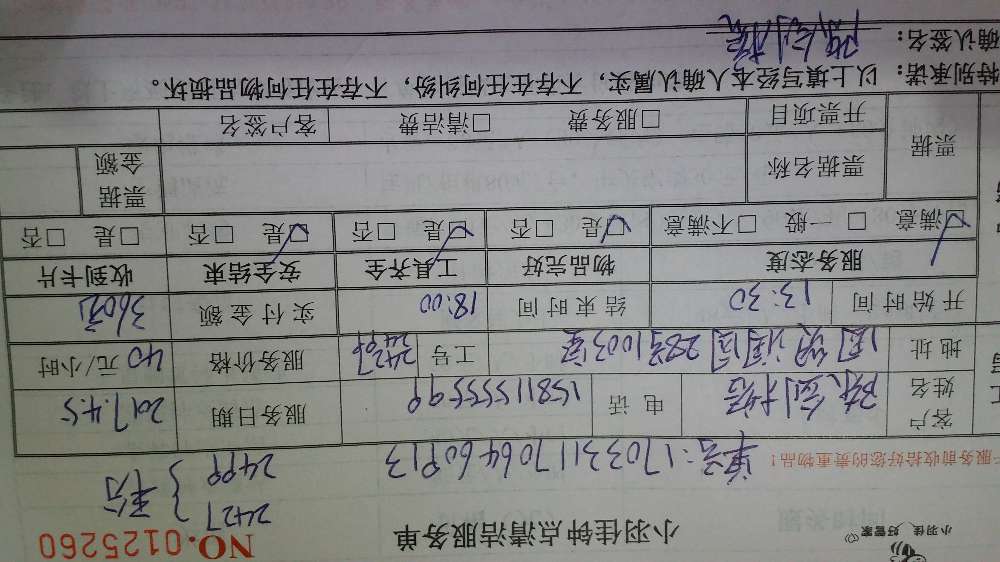 小羽佳 好管家
小羽佳钟点清洁服务单
NO.0125260
2427
2499 } 平分
服务前收拾好您的贵重物品!
单号:170331170646 0913
客户姓名 电话 15811555599 服务日期 2017.4.5
地址 国锐润园 28号1003室 工号 2427 服务价格 40 元/小时
开始时间 13:30 结束时间 18:00 实付金额 360元
服务态度 物品完好 工具齐全 安全结束 收到卡片
☑满意 □一般 □不满意 ☑是 □否 ☑是 □否 ☑是 □否 □是 □否
票据 票据名称 票据金额
开票项目 □服务费 □清洁费 客户签名
特别承诺:以上填写经本人确认属实,不存在任何纠纷,不存在任何物品损坏。
确认签名: